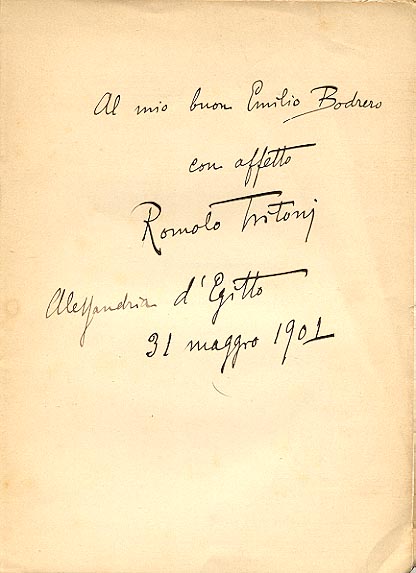 Al mio buon Emilio Bodrero
con affetto
Romolo Tritonj
Alessandria d'Egitto
31 maggio 1901